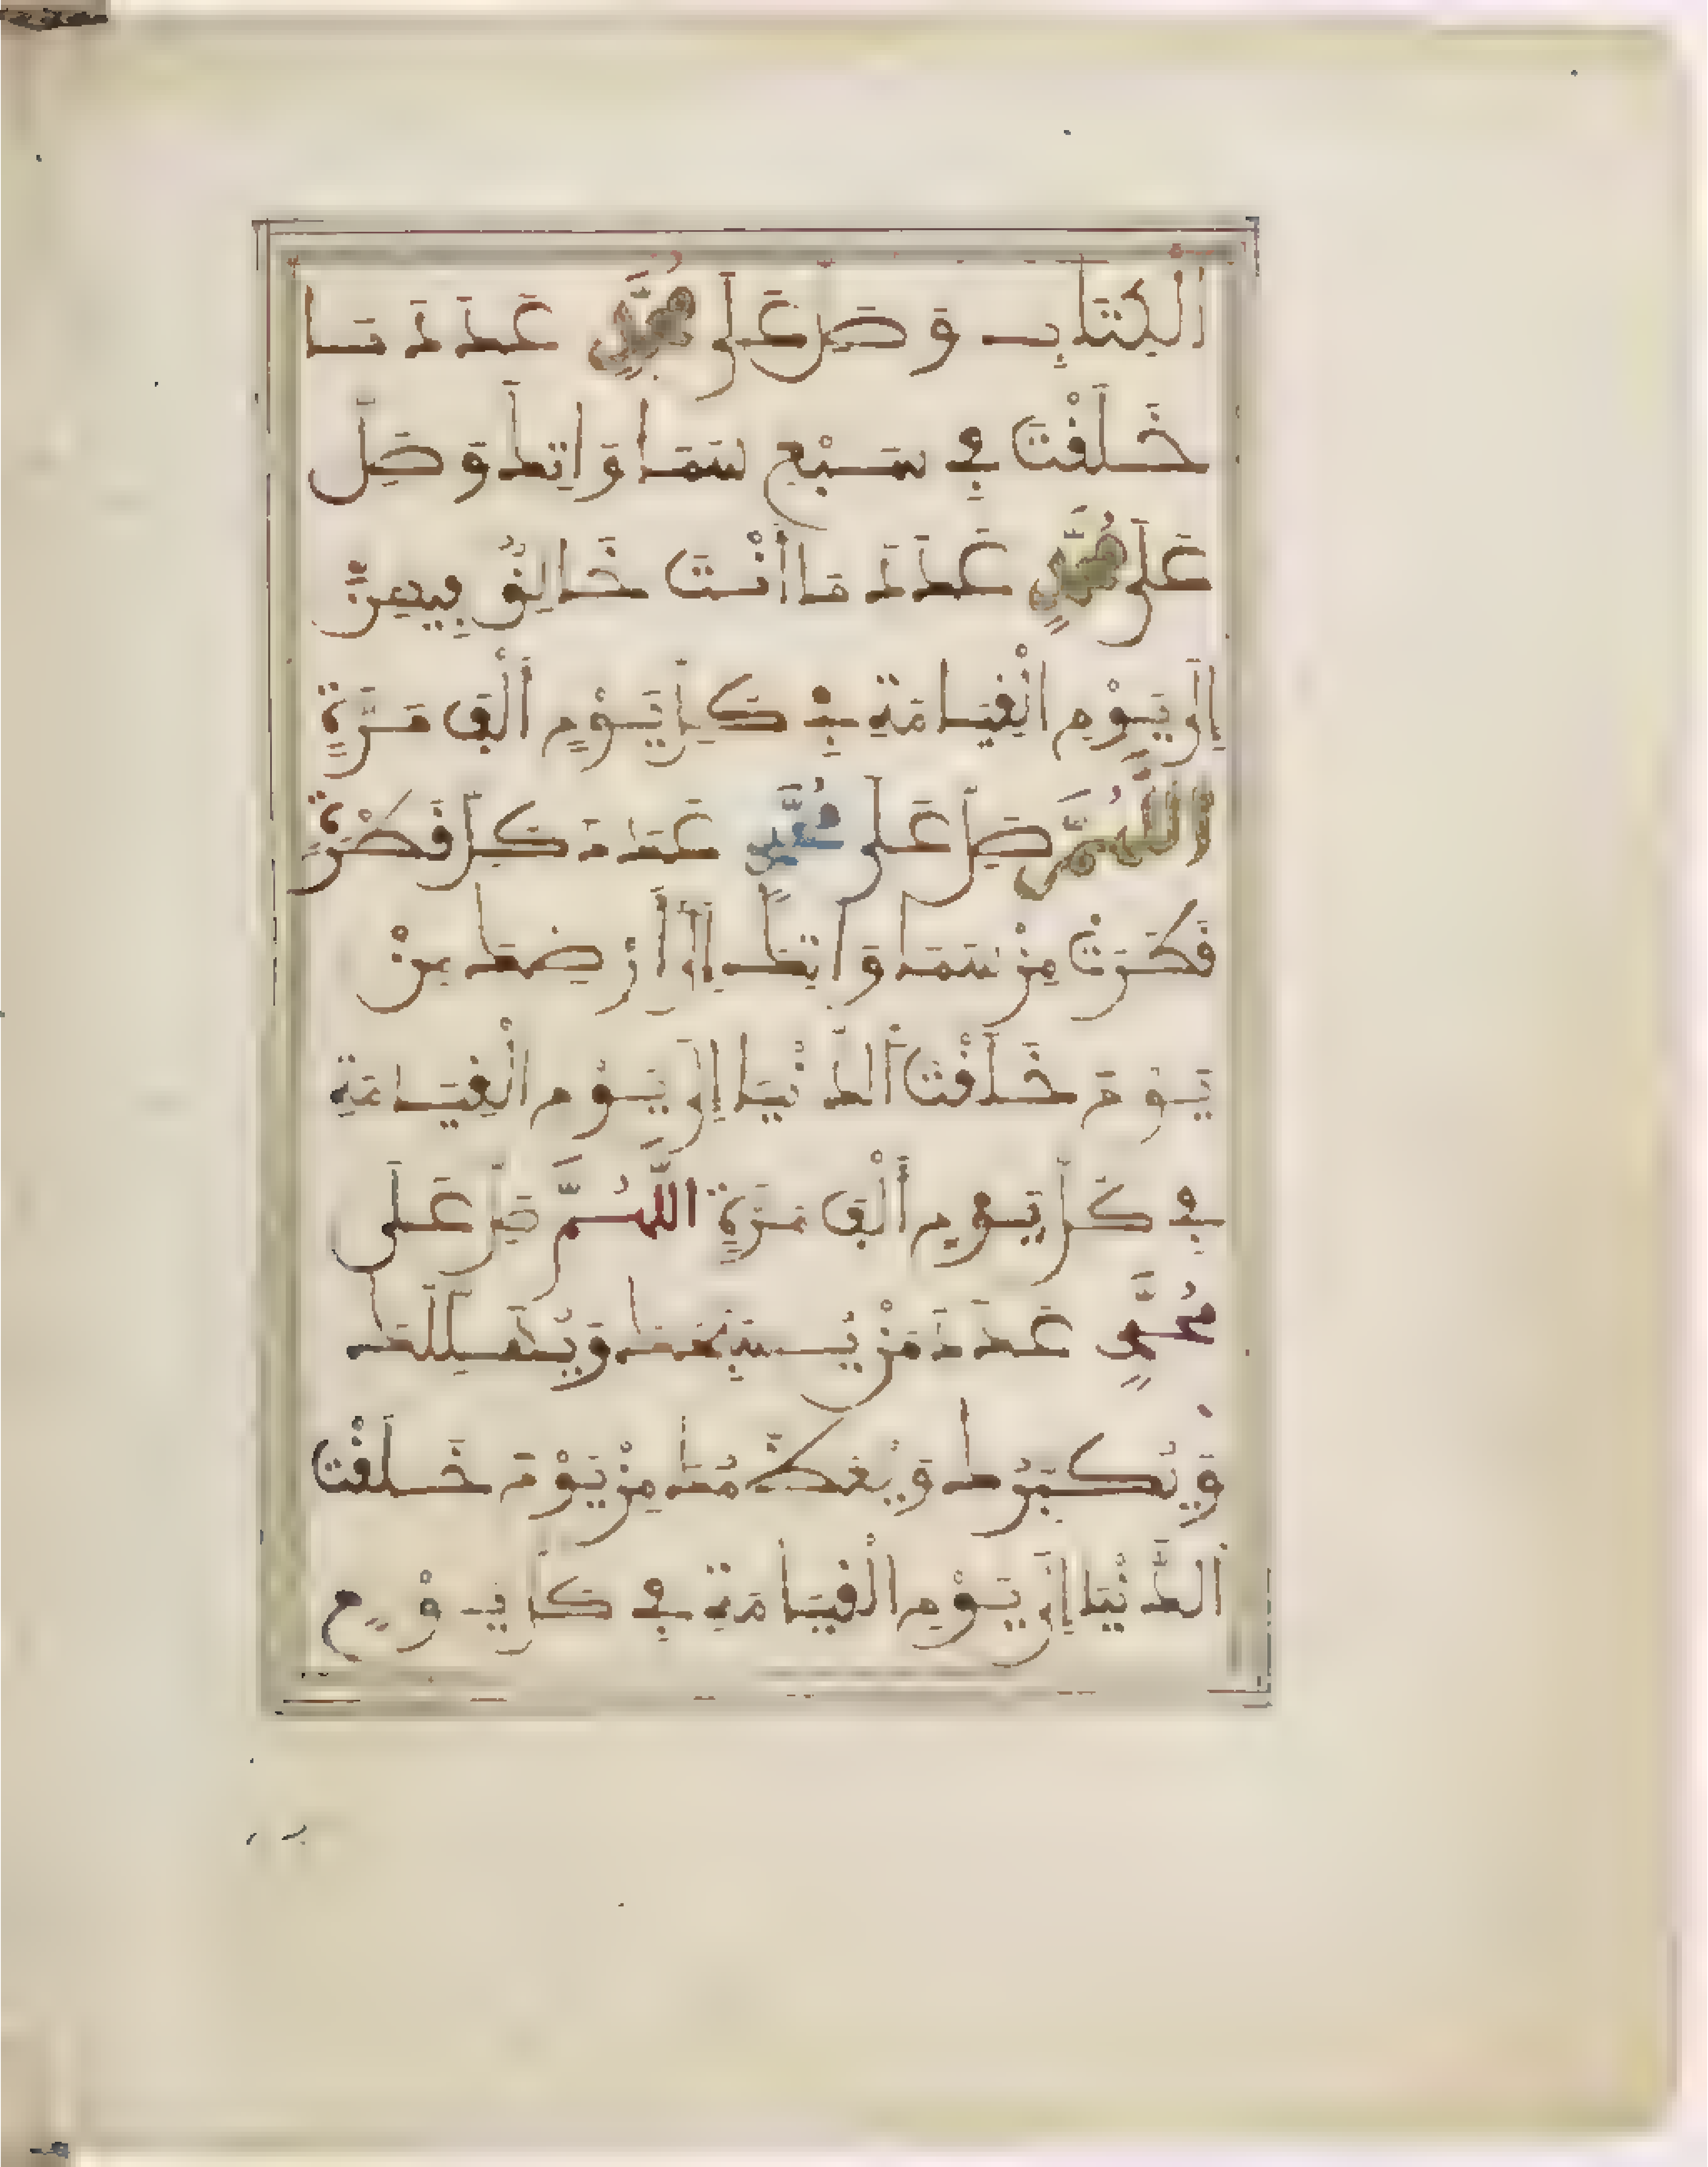 الْكِتَابِ وَصَلِّ عَلَى مُحَمَّدٍ عَدَدَ مَا
خَلَقْتَ فِي سَبْعِ سَمَاوَاتِكَ وَصَلِّ
عَلَى مُحَمَّدٍ عَدَدَ مَا أَنْتَ خَالِقٌ فِيهِنَّ
إِلَى يَوْمِ الْقِيَامَةِ فِي كُلِّ يَوْمٍ أَلْفَ مَرَّةٍ
اللَّهُمَّ صَلِّ عَلَى مُحَمَّدٍ عَدَدَ كُلِّ قَطْرَةٍ
قَطَرَتْ مِنْ سَمَاوَاتِكَ إِلَى أَرْضِكَ مِنْ
يَوْمَ خَلَقْتَ الدُّنْيَا إِلَى يَوْمِ الْقِيَامَةِ
فِي كُلِّ يَوْمٍ أَلْفَ مَرَّةٍ اللَّهُمَّ صَلِّ عَلَى
مُحَمَّدٍ عَدَدَ مَنْ يُسَبِّحُكَ وَيُهَلِّلُكَ
وَيُكَبِّرُكَ وَيُعَظِّمُكَ مِنْ يَوْمَ خَلَقْتَ
الدُّنْيَا إِلَى يَوْمِ الْقِيَامَةِ فِي كُلِّ يَوْمٍ